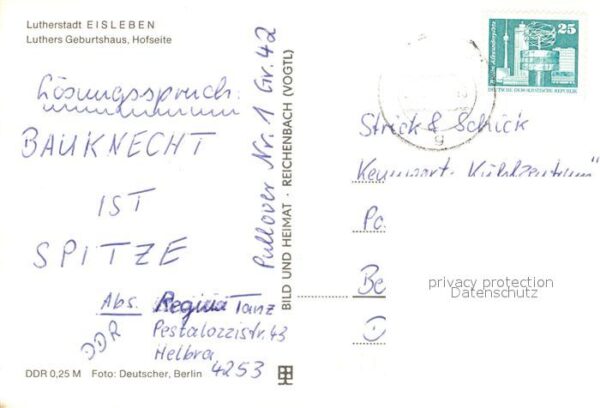 Lutherstadt EISLEBEN
Luthers Geburtshaus, Hofseite
Lösungsspruch:
BAUKNECHT
IST
SPITZE
Abs. Regina Tanz
DDR
Pestalozzistr. 43
Helbra
4253
DDR 0,25 M Foto: Deutscher, Berlin
Pullover Nr. 1 Gr. 42
BILD UND HEIMAT · REICHENBACH (VOGTL)
25
DEUTSCHE DEMOKRATISCHE REPUBLIK
Strick & Schick
Kennwort - Kühlzentrum"
Po
Be
D
privacy protection
Datenschutz